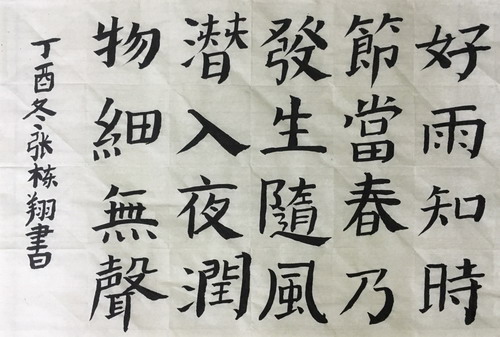 好雨知時
節當春乃
發生隨風
潛入夜潤
物細無聲
丁酉冬张栋翔書